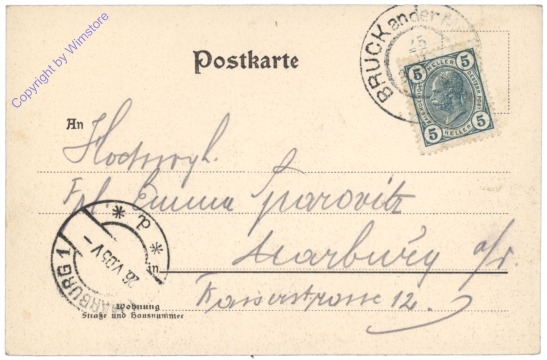 Copyright by Wimstore
Postkarte
BRUCK an der
25
5 HELLER 5
5 HELLER 5
An
Hochwgb.
Frl. Emma Sparovitz
Marburg a/D.
Kaiserstrasse 12.
MARBURG 1
26 V 05 V
* P *
m
Wohnung
Straße und Hausnummer